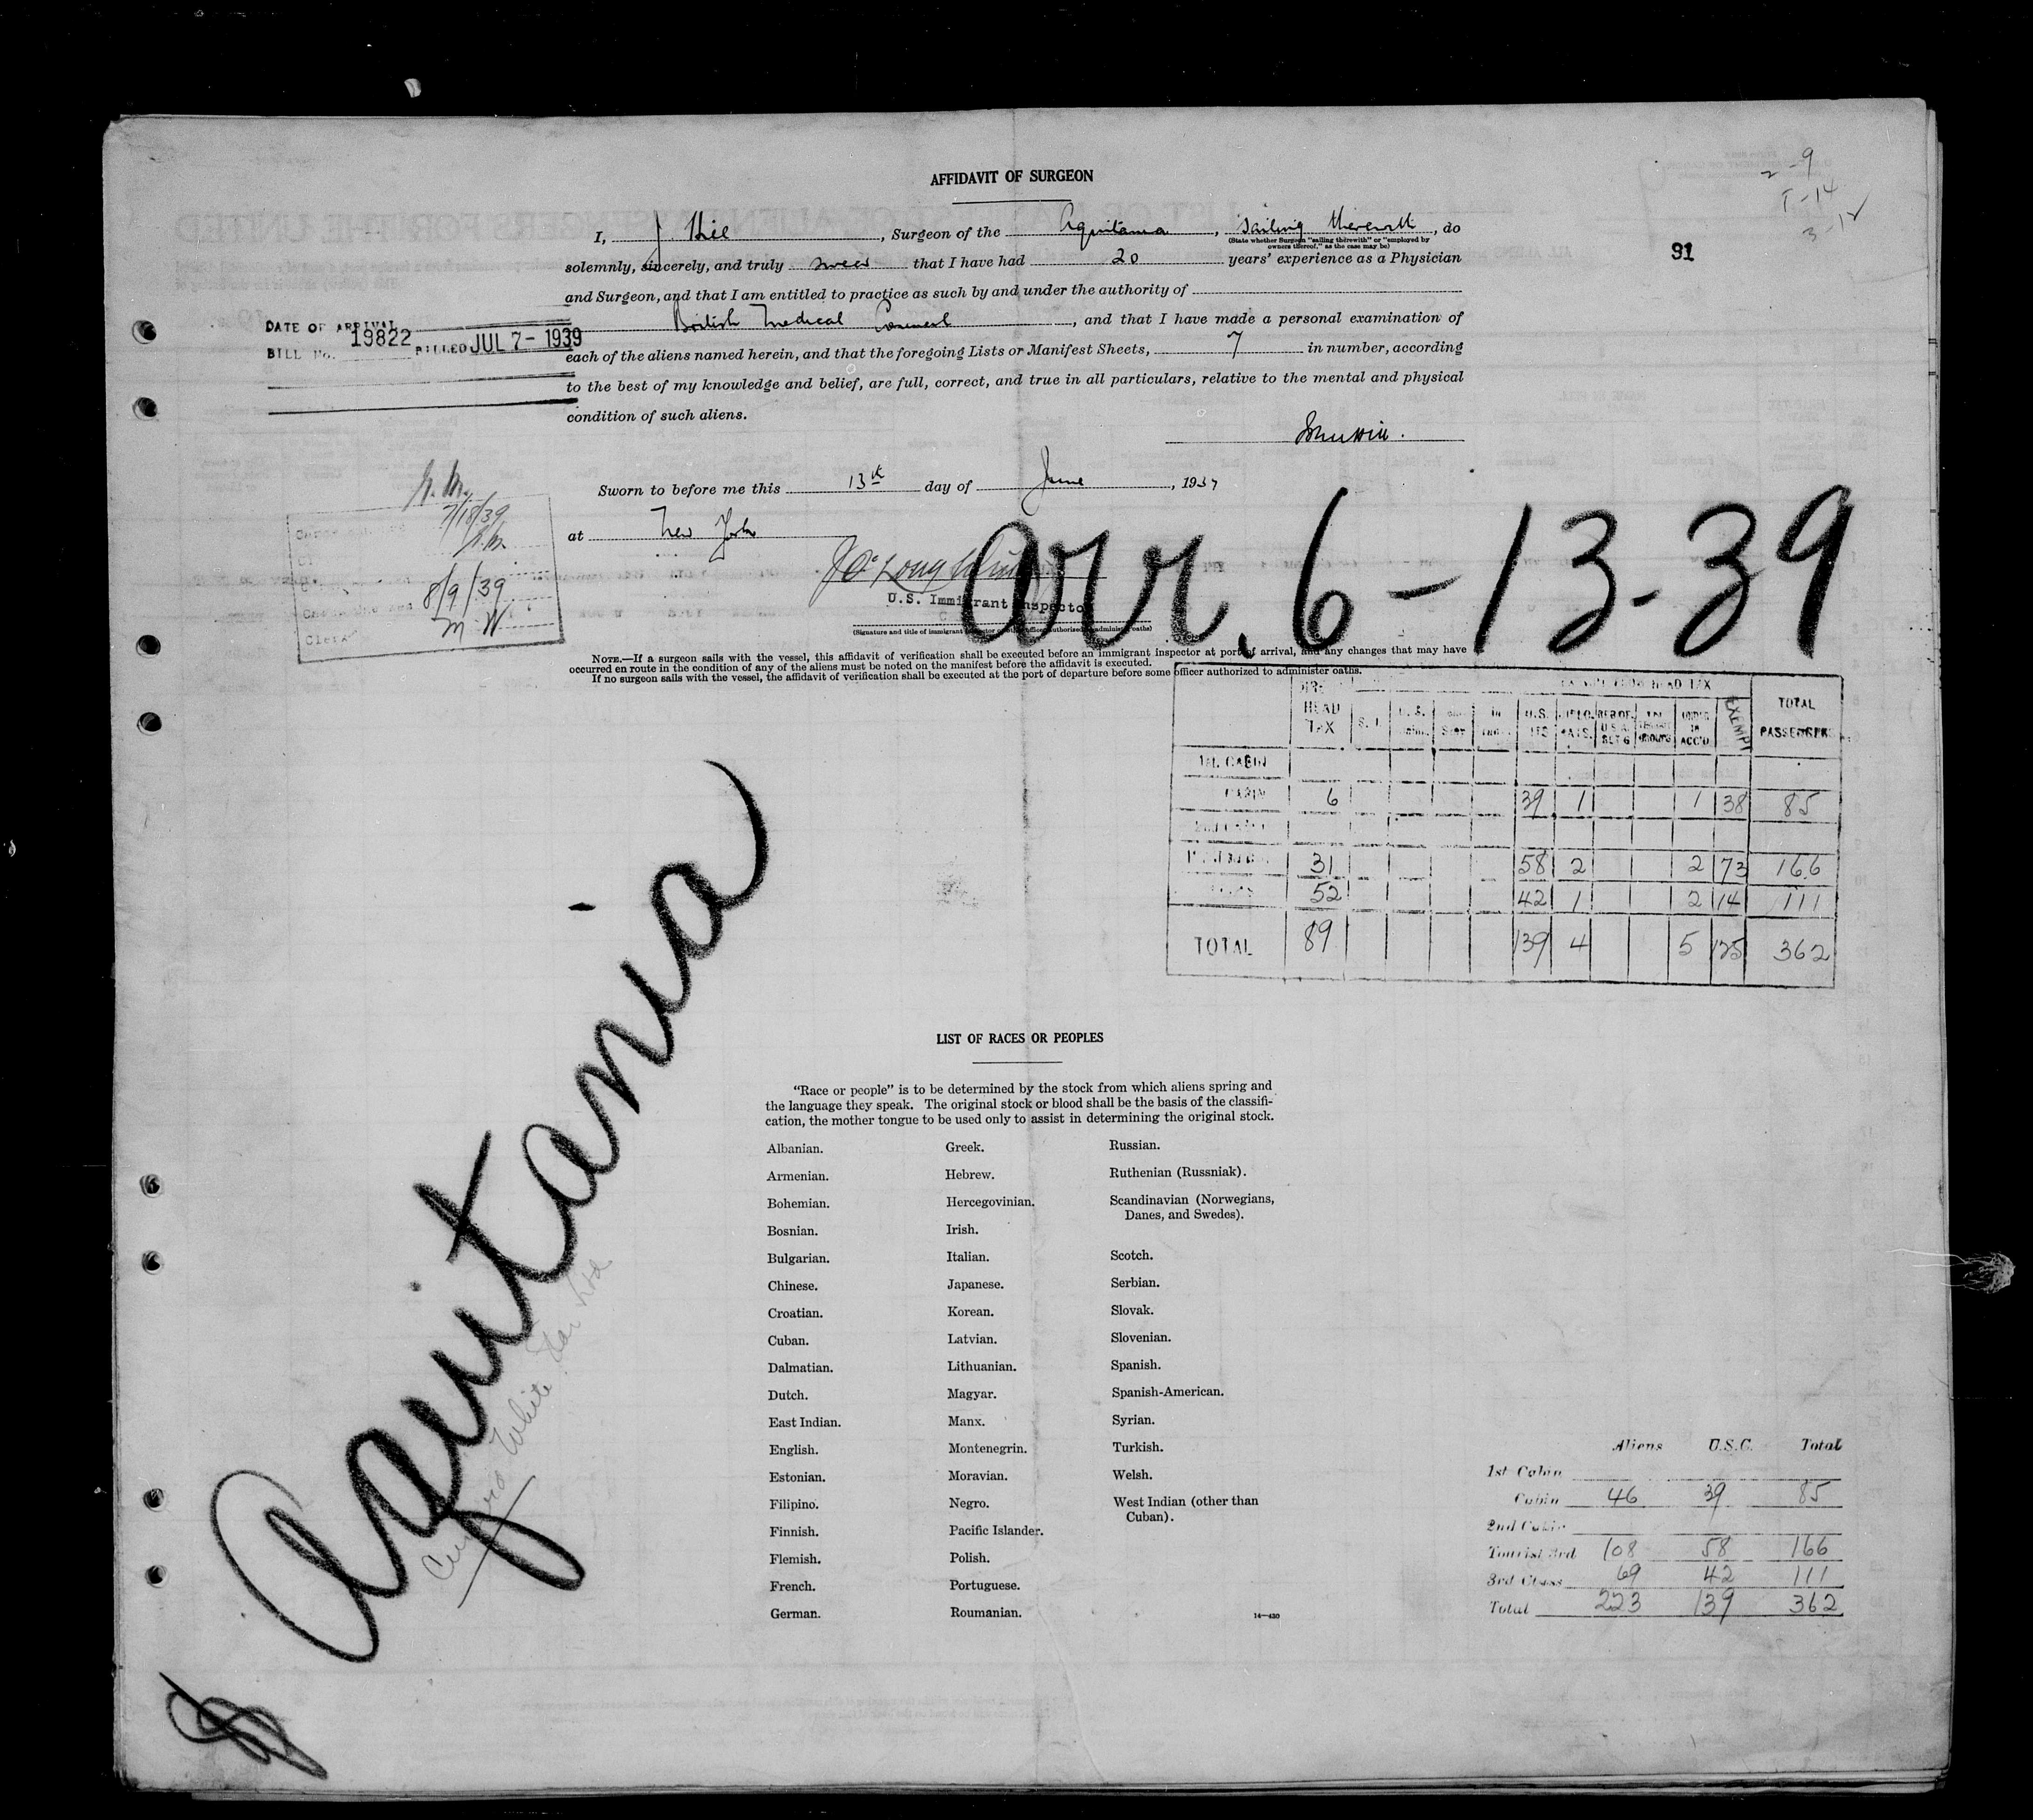 AFFIDAVIT OF SURGEON
2-9
1-14
3-12
91
I, J Hill, Surgeon of the Aquitania, sailing therewith, do
(State whether Surgeon "sailing therewith" or "employed by
owners thereof," as the case may be)
solemnly, sincerely, and truly swear that I have had 20 years' experience as a Physician
and Surgeon, and that I am entitled to practice as such by and under the authority of
British Medical Council, and that I have made a personal examination of
DATE OF ARRIVAL
BILL No. 19822 BILLED JUL 7- 1939
each of the aliens named herein, and that the foregoing Lists or Manifest Sheets, 7 in number, according
to the best of my knowledge and belief, are full, correct, and true in all particulars, relative to the mental and physical
condition of such aliens.
John Hill.
Sworn to before me this 13th day of June, 1939
at New York
7/18/39
8/9/39
M W
Clerk
arr. 6-13-39
U.S. Immigrant Inspector
(Signature and title of immigrant inspector or other officer authorized to administer oaths)
NOTE.—If a surgeon sails with the vessel, this affidavit of verification shall be executed before an immigrant inspector at port of arrival, and any changes that may have
occurred en route in the condition of any of the aliens must be noted on the manifest before the affidavit is executed.
If no surgeon sails with the vessel, the affidavit of verification shall be executed at the port of departure before some officer authorized to administer oaths.
HEAD TAX
HEAD TAX S. I. U.S. EXEMPT TOTAL PASSENGERS
1st. CABIN
CABIN 6 39 1 1 38 85
2nd CABIN
31 58 2 2 73 166
52 42 1 2 14 111
TOTAL 89 139 4 5 125 362
Aquitania
Cunard White Star Ltd
LIST OF RACES OR PEOPLES
"Race or people" is to be determined by the stock from which aliens spring and
the language they speak. The original stock or blood shall be the basis of the classifi-
cation, the mother tongue to be used only to assist in determining the original stock.
Albanian.
Armenian.
Bohemian.
Bosnian.
Bulgarian.
Chinese.
Croatian.
Cuban.
Dalmatian.
Dutch.
East Indian.
English.
Estonian.
Filipino.
Finnish.
Flemish.
French.
German.
Greek.
Hebrew.
Hercegovinian.
Irish.
Italian.
Japanese.
Korean.
Latvian.
Lithuanian.
Magyar.
Manx.
Montenegrin.
Moravian.
Negro.
Pacific Islander.
Polish.
Portuguese.
Roumanian.
Russian.
Ruthenian (Russniak).
Scandinavian (Norwegians,
Danes, and Swedes).
Scotch.
Serbian.
Slovak.
Slovenian.
Spanish.
Spanish-American.
Syrian.
Turkish.
Welsh.
West Indian (other than
Cuban).
14—430
Aliens U.S.C. Total
1st Cabin
Cabin 46 39 85
2nd Cabin
Tourist 3rd 108 58 166
3rd Class 69 42 111
Total 223 139 362